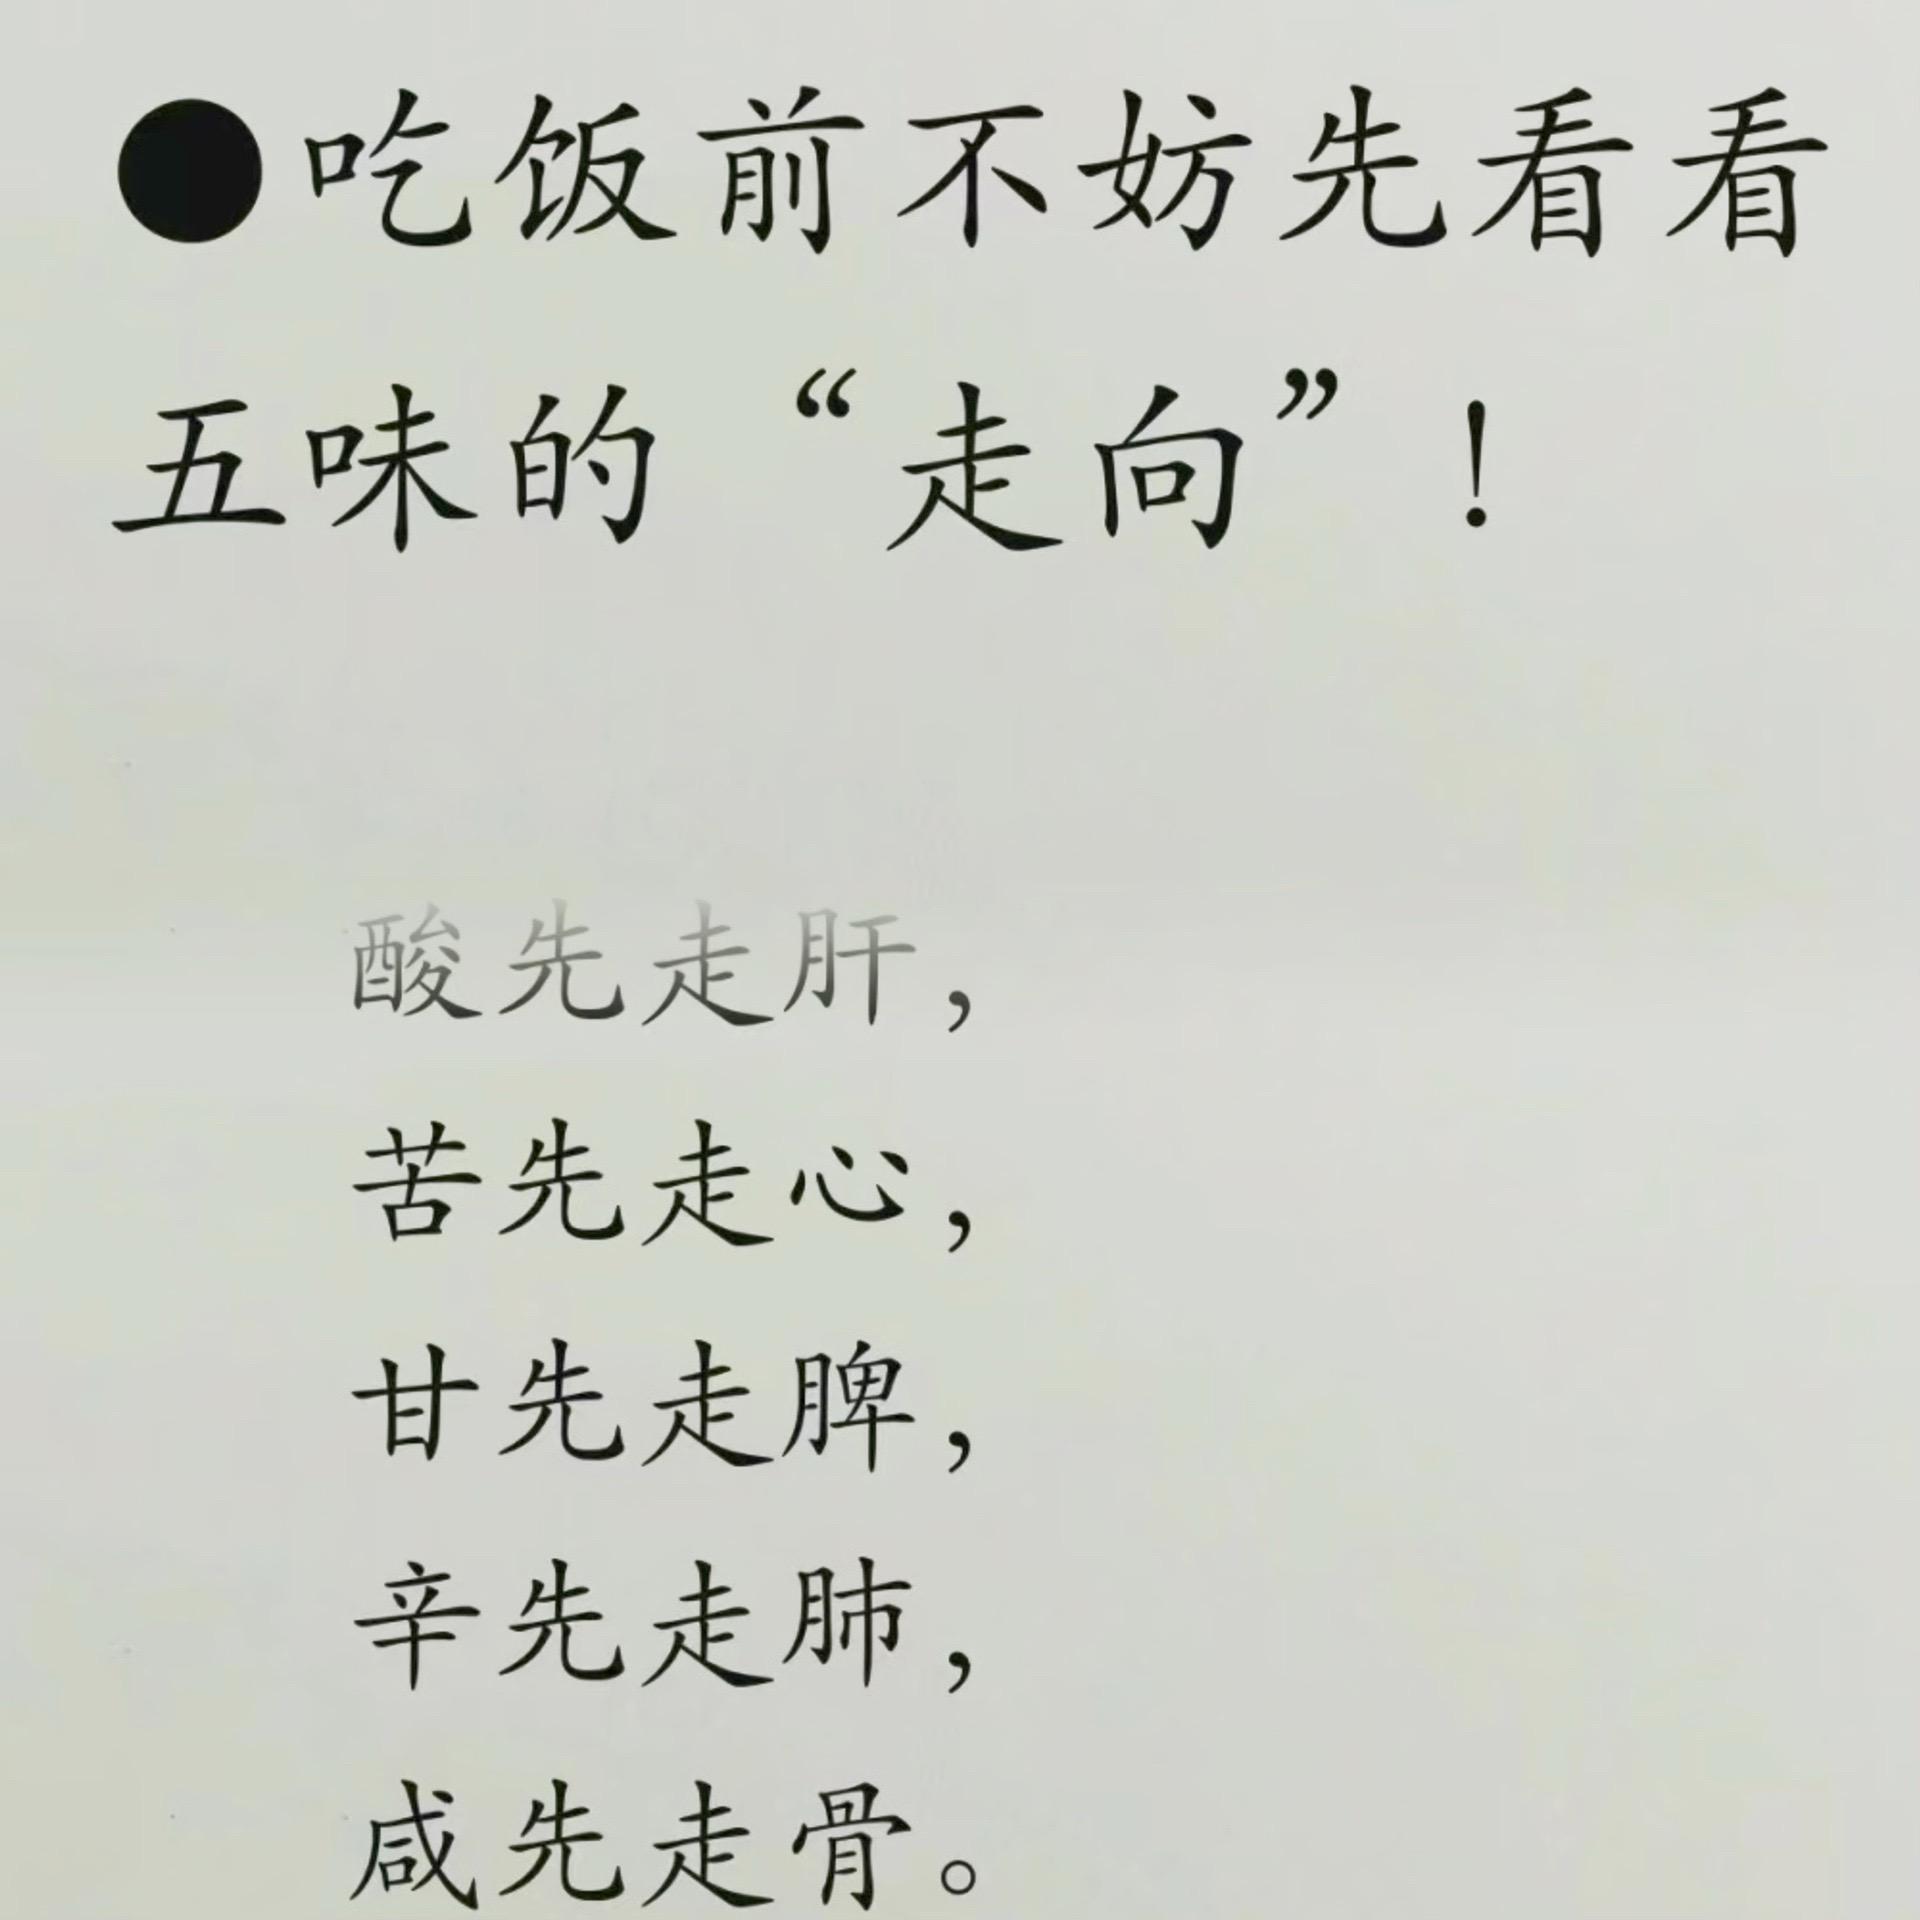 ●吃饭前不妨先看看
五味的“走向”！
酸先走肝，
苦先走心，
甘先走脾，
辛先走肺，
咸先走骨。